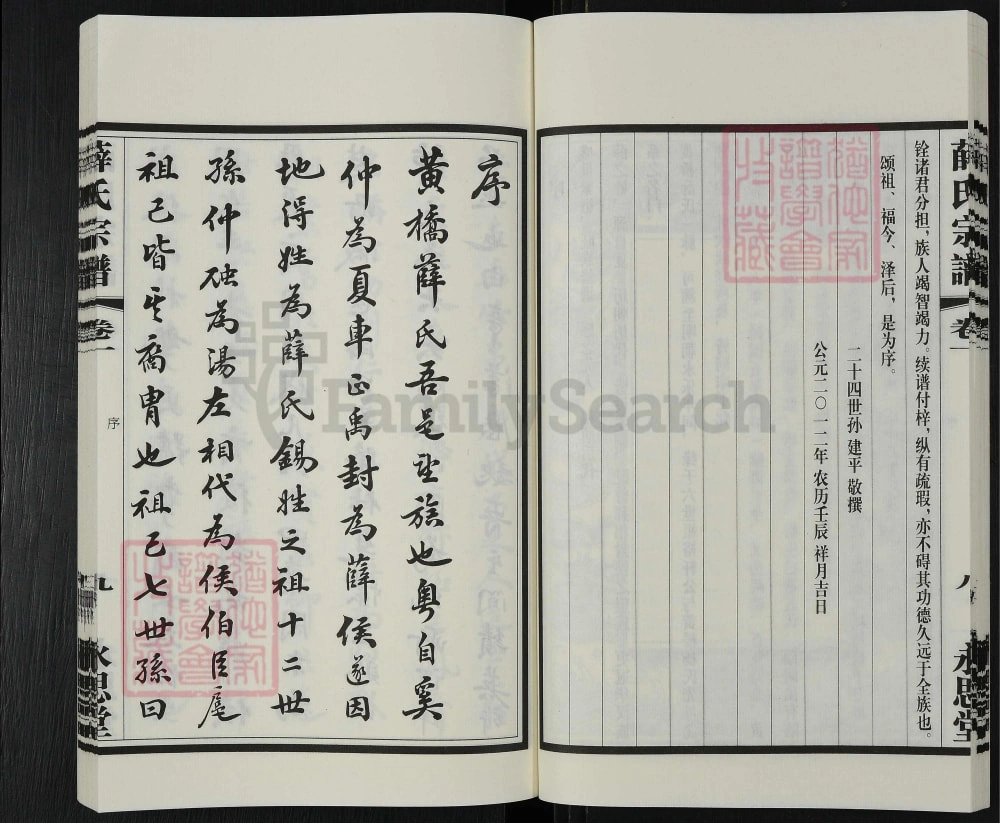 铨诸君分担，族人竭智竭力。续谱付梓，纵有疏瑕，亦不碍其功德久远于全族也。
颂祖、福今、泽后，是为序。
二十四世孙 建平 敬撰
公元二〇一二年 农历壬辰 祥月吉日
薛氏宗譜
卷一
八
永思堂
序
黄橋薛氏吾邑望族也粤自奚
仲為夏車正禹封為薛侯遂因
地得姓為薛氏錫姓之祖十二世
孫仲虺為湯左相代為侯伯臣扈
祖己皆其裔胄也祖己七世孫曰
薛氏宗譜
卷一
序
九
永思堂
FamilySearch